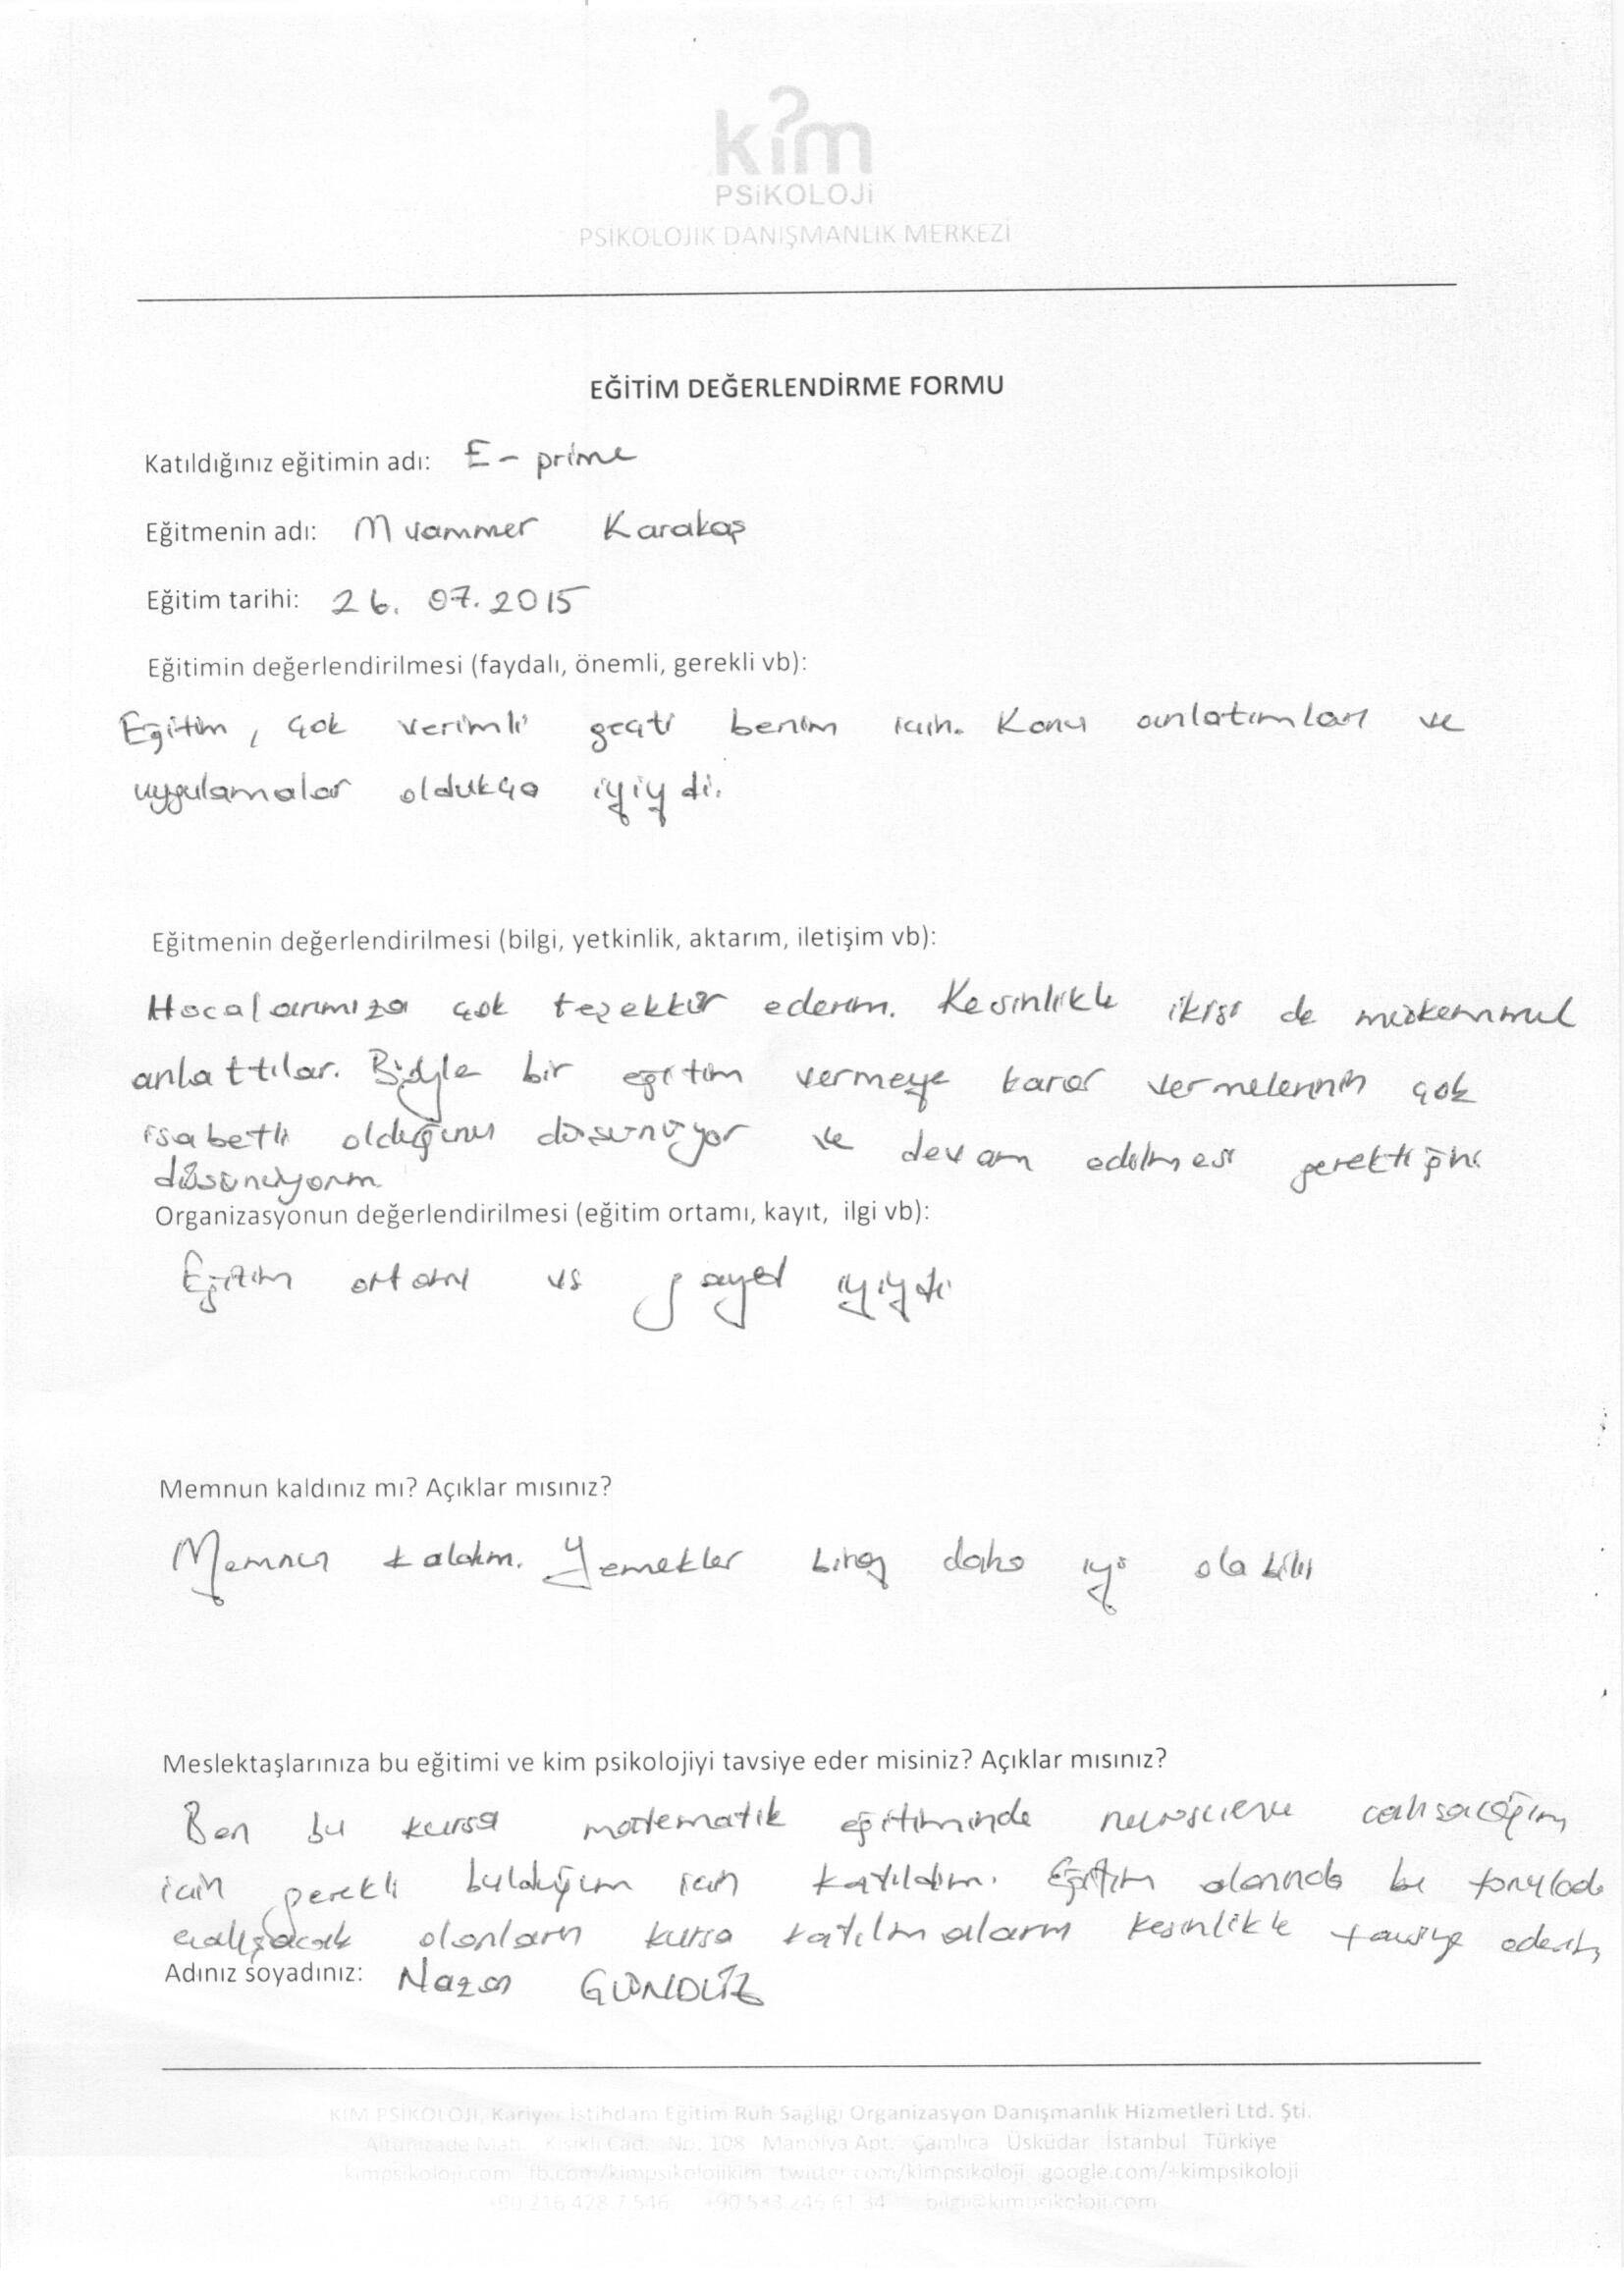 kim
PSİKOLOJİ
PSİKOLOJİK DANIŞMANLIK MERKEZİ
EĞİTİM DEĞERLENDİRME FORMU
Katıldığınız eğitimin adı: E - prime
Eğitmenin adı: Muammer Karakaş
Eğitim tarihi: 26. 07. 2015
Eğitimin değerlendirilmesi (faydalı, önemli, gerekli vb):
Eğitim, çok verimli geçti benim için. Konu anlatımları ve
uygulamalar oldukça iyiydi.
Eğitmenin değerlendirilmesi (bilgi, yetkinlik, aktarım, iletişim vb):
Hocalarımıza çok teşekkür ederim. Kesinlikle ikisi de mükemmel
anlattılar. Böyle bir eğitim vermeye karar vermelerinin çok
isabetli olduğunu düşünüyor ve devam edilmesi gerektiğini
düşünüyorum
Organizasyonun değerlendirilmesi (eğitim ortamı, kayıt, ilgi vb):
Eğitim ortamı vs gayet iyiydi
Memnun kaldınız mı? Açıklar mısınız?
Memnun kaldım. Yemekler biraz daha iyi olabilir
Meslektaşlarınıza bu eğitimi ve kim psikolojiyi tavsiye eder misiniz? Açıklar mısınız?
Ben bu kursa matematik eğitiminde çalışacağım
için gerekli bulduğum için katıldım. Eğitim alanında bu
çalışacak olanların kursa katılmalarını kesinlikle tavsiye ederim
Adınız soyadınız: GÜNDÜZ
KİM PSİKOLOJİ, Kariyer İstihdam Eğitim Ruh Sağlığı Organizasyon Danışmanlık Hizmetleri Ltd. Şti.
Altunizade Mah. Kısıklı Cad. No. 108 Manolya Apt. Çamlıca Üsküdar İstanbul Türkiye
kimpsikoloji.com fb.com/kimpsikolojikim twitter.com/kimpsikoloji google.com/+kimpsikoloji
+90 216 428 7 546 +90 533 246 61 34 bilgi@kimpsikoloji.com